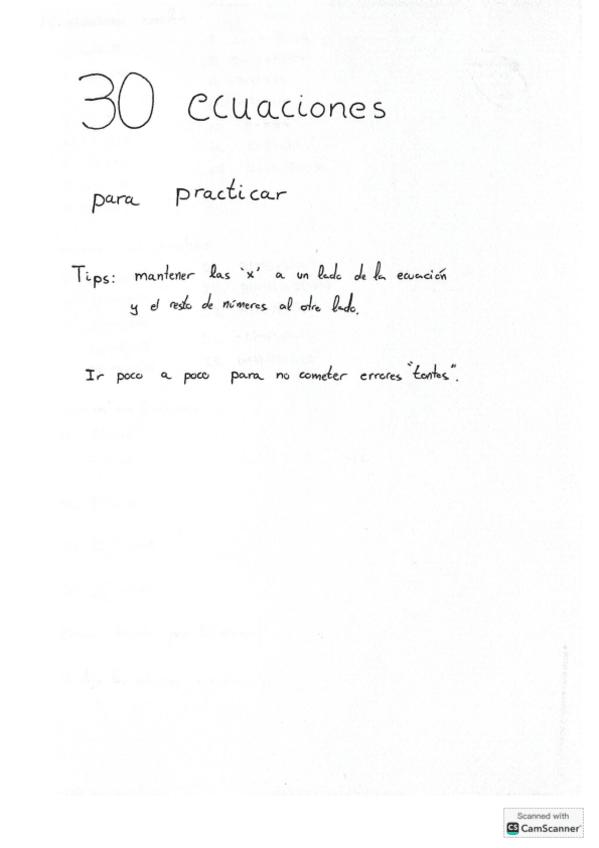 30 ecuaciones
para practicar
Tips: mantener las 'x' a un lado de la ecuación
y el resto de números al otro lado.
Ir poco a poco para no cometer errores "tontos".
Scanned with
CS CamScanner